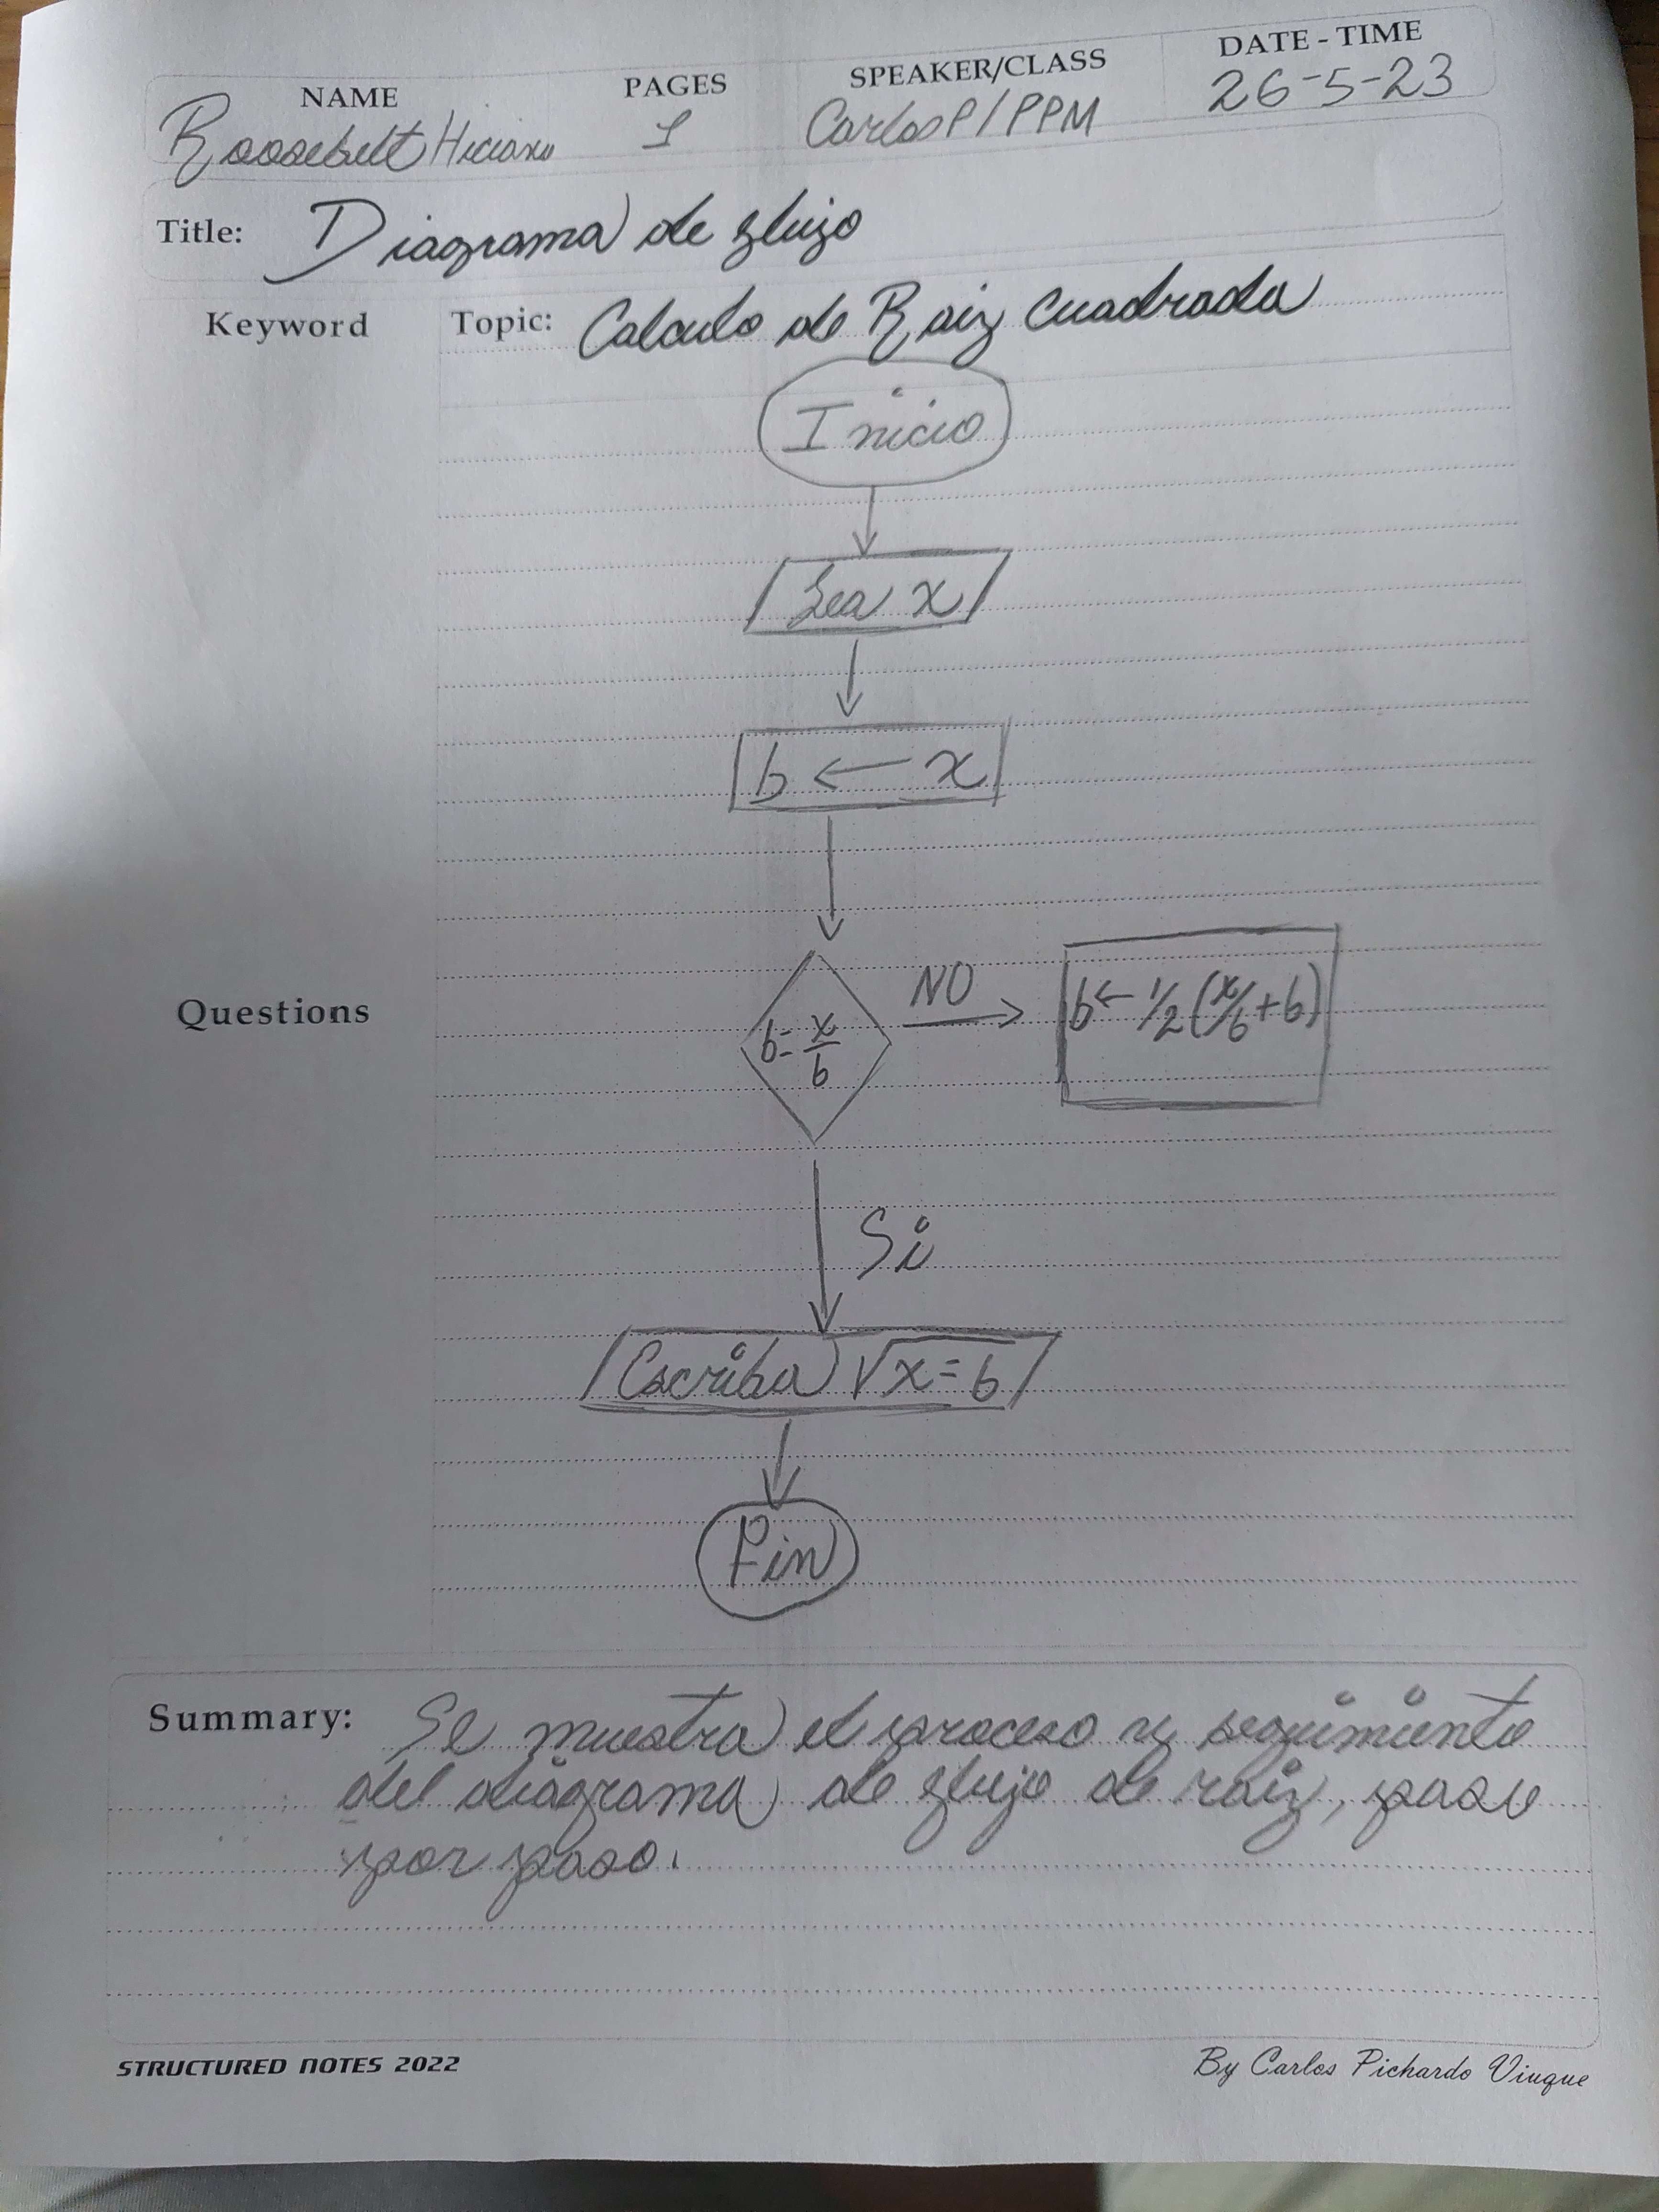 NAME PAGES SPEAKER/CLASS DATE - TIME
Roosebelt Hiciano 1 Carlos P / PPM 26-5-23
Title: Diagrama de flujo
Keyword Topic: Calculo de Raiz Cuadrada
Inicio
Lea x
b ← x
Questions
b = x/b
NO
b ← 1/2 (x/b + b)
Si
Escriba √x = b
Fin
Summary: Se muestra el proceso y seguimiento
del diagrama de flujo de raiz, paso
por paso.
STRUCTURED NOTES 2022 By Carlos Pichardo Viuque